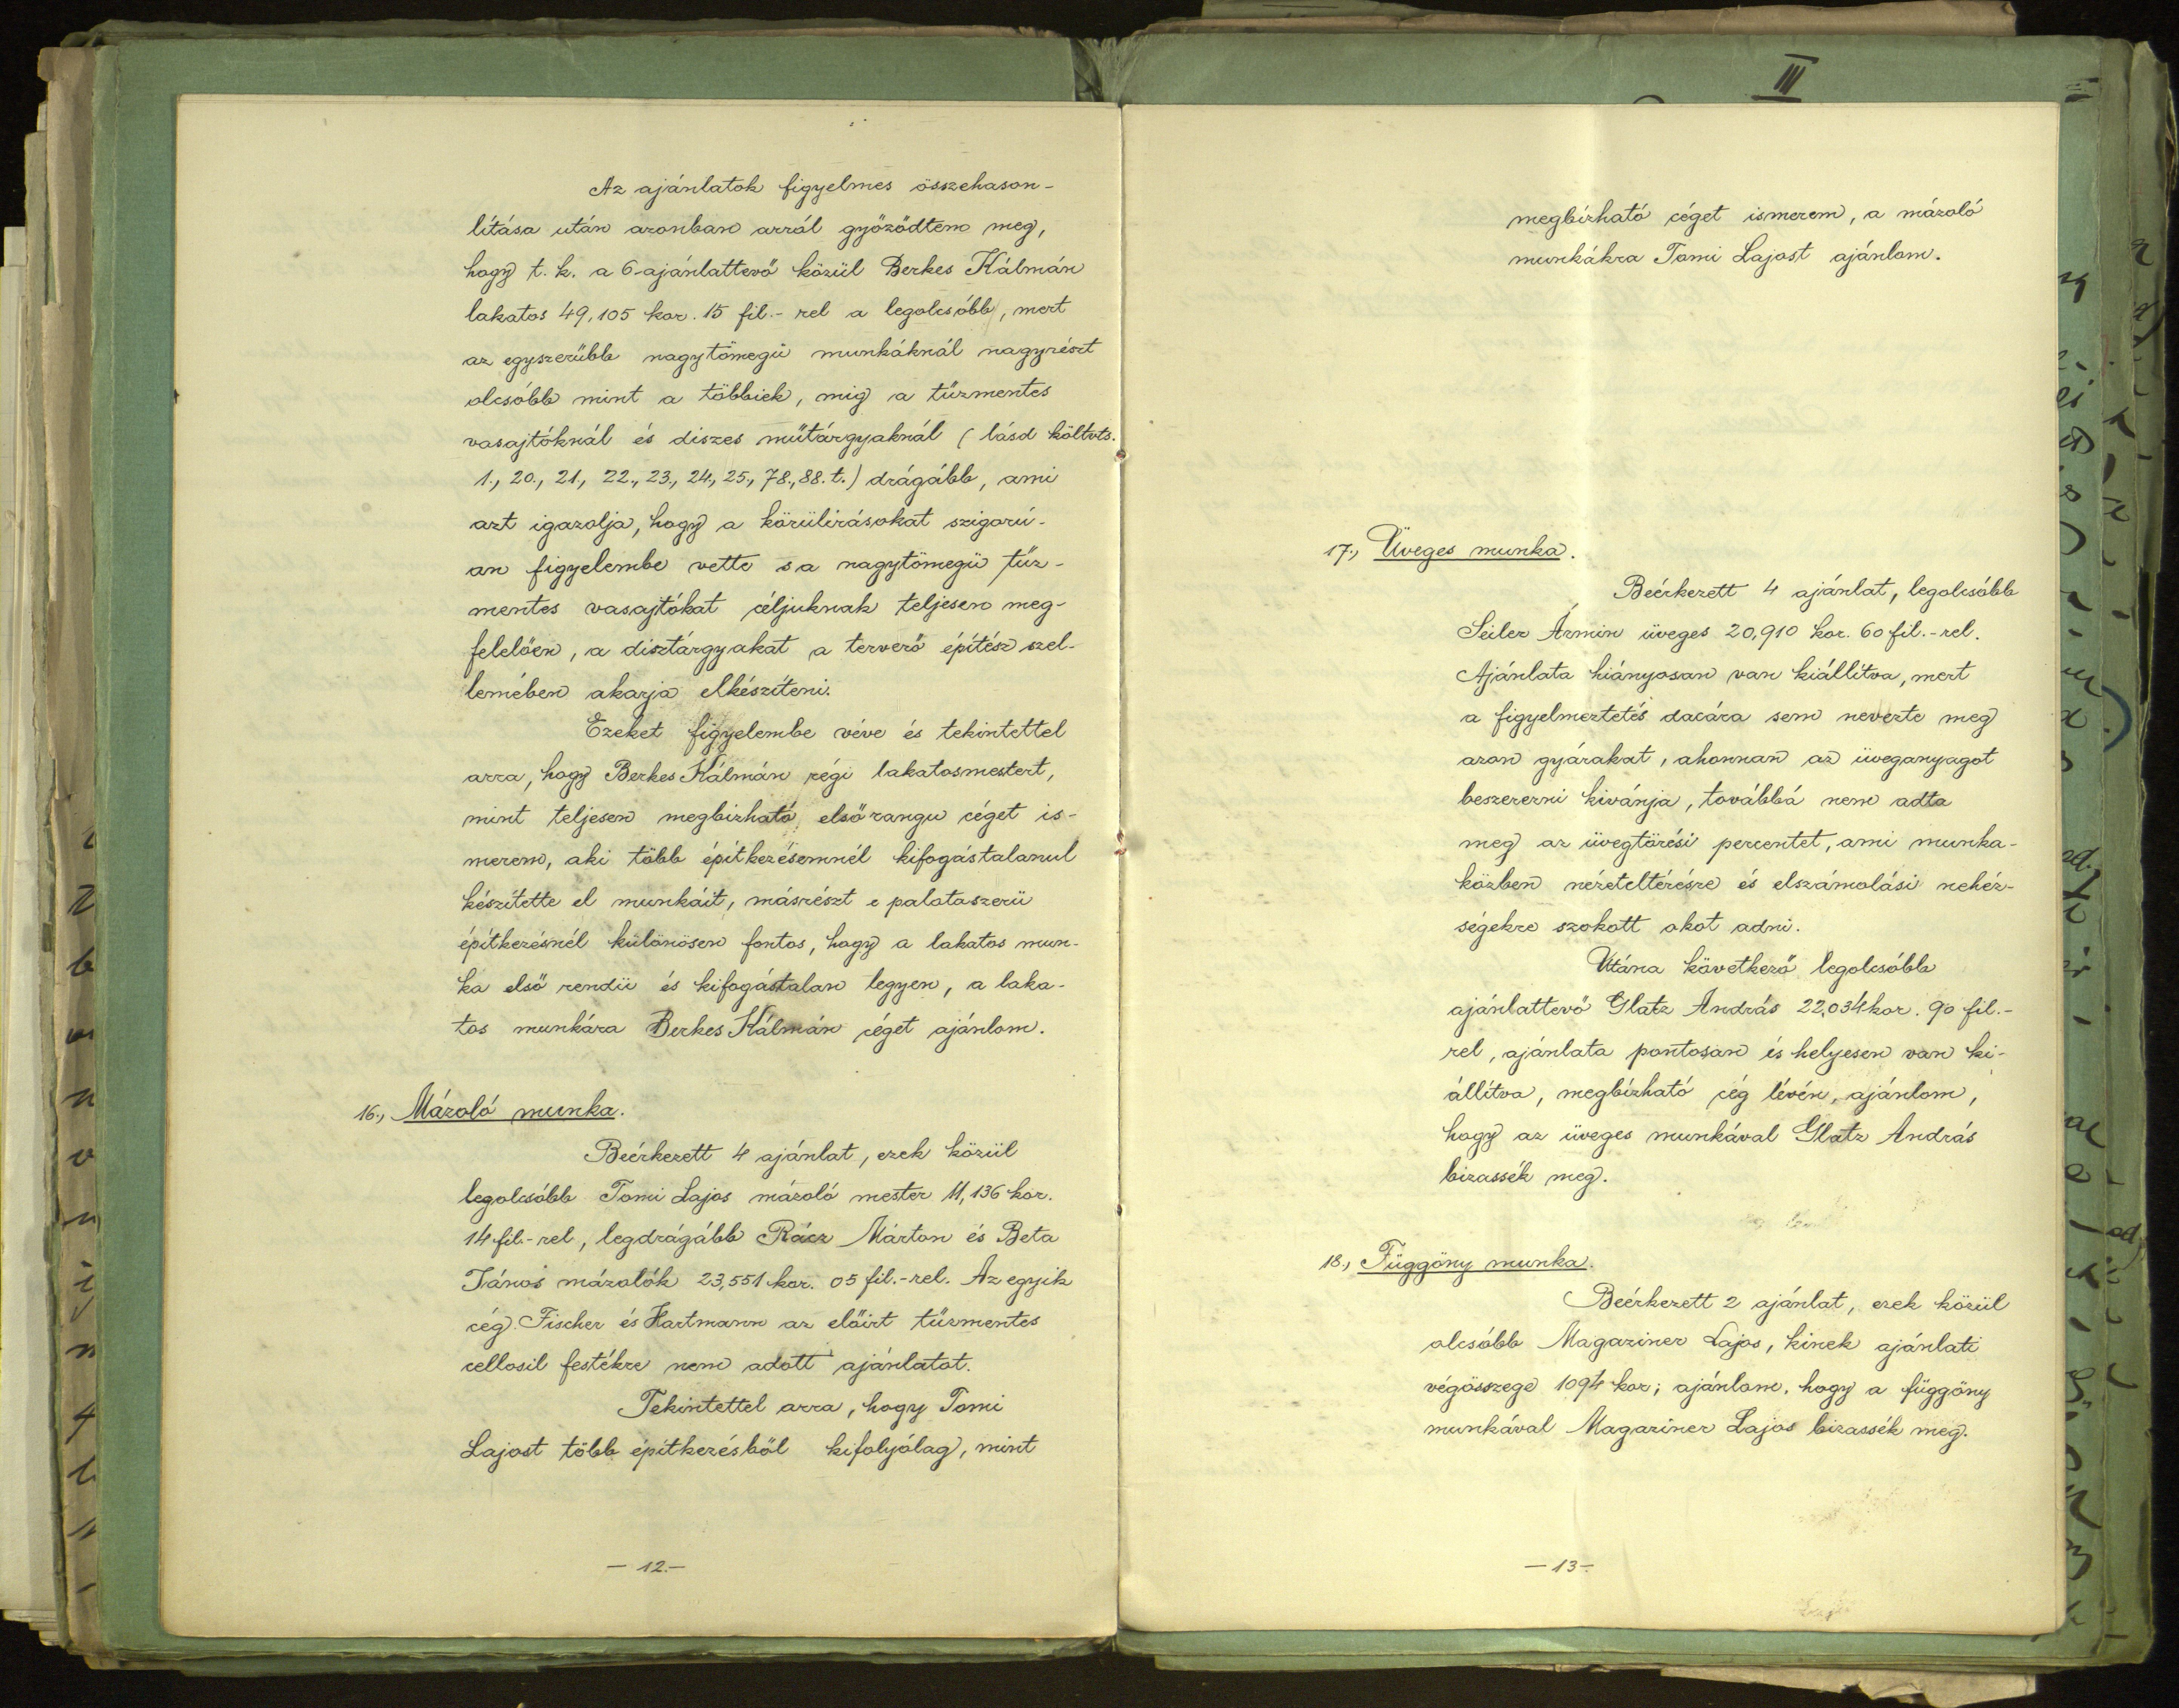 Az ajánlatok figyelmes összehason-
lítása után azonban arról győződtem meg,
hogy t. k. a 6-ajánlattevő közül Berkes Kálmán
lakatos 49,105 kor. 15 fil.- rel a legolcsóbb, mert
az egyszerűbb nagytömegü munkáknál nagyrészt
olcsóbb mint a többiek, mig a tűzmentes
vasajtóknál és diszes műtárgyaknál (lásd költvts.
1., 20., 21., 22., 23., 24., 25., 78., 88. t.) drágább, ami
azt igazolja, hogy a körülirásokat szigorú-
an figyelembe vette s a nagytömegü tűz-
mentes vasajtókat céljuknak teljesen meg-
felelően, a disztárgyakat a tervező építész szel-
lemében akarja elkészíteni.
Ezeket figyelembe véve és tekintettel
arra, hogy Berkes Kálmán régi lakatosmestert,
mint teljesen megbizható, elsőrangu céget is-
merem, aki több építkezésemnél kifogástalanul
készítette el munkáit, másrészt e palotaszerü
építkezésnél különösen fontos, hogy a lakatos mun-
ka első rendü és kifogástalan legyen, a laka-
tos munkára Berkes Kálmán céget ajánlom.
16., Mázoló munka.
Beérkezett 4 ajánlat, ezek közül
legolcsóbb Tomi Lajos mázoló mester 11,136 kor.
14 fil.-rel, legdrágább Rácz Márton és Beta
János mázolók 23,551 kor. 05 fil.-rel. Az egyik
cég Fischer és Hartmann az előirt tűzmentes
cellosil festékre nem adott ajánlatot.
Tekintettel arra, hogy Tomi
Lajost több építkezésből kifolyólag, mint
— 12.—
III
megbízható céget ismerem, a mázoló
munkákra Tomi Lajost ajánlom.
17., Üveges munka.
Beérkezett 4 ajánlat, legolcsóbb
Seiler Ármin üveges 20,910 kor. 60 fil.-rel.
Ajánlata hiányosan van kiállítva, mert
a figyelmeztetés dacára sem nevezte meg
azon gyárakat, ahonnan az üveganyagot
beszerezni kivánja, továbbá nem adta
meg az üvegtörési percentet, ami munka-
közben nézeteltérésre és elszámolási nehéz-
ségekre szokott okot adni.
Utána következő legolcsóbb
ajánlattevő Glatz András 22,034 kor. 90 fil.-
rel, ajánlata pontosan és helyesen van ki-
állítva, megbízható cég lévén, ajánlom,
hogy az üveges munkával Glatz András
bizassék meg.
18., Függöny munka.
Beérkezett 2 ajánlat, ezek közül
olcsóbb Magaziner Lajos, kinek ajánlati
végösszege 1094 kor; ajánlom, hogy a függöny
munkával Magaziner Lajos bizassék meg.
— 13 —